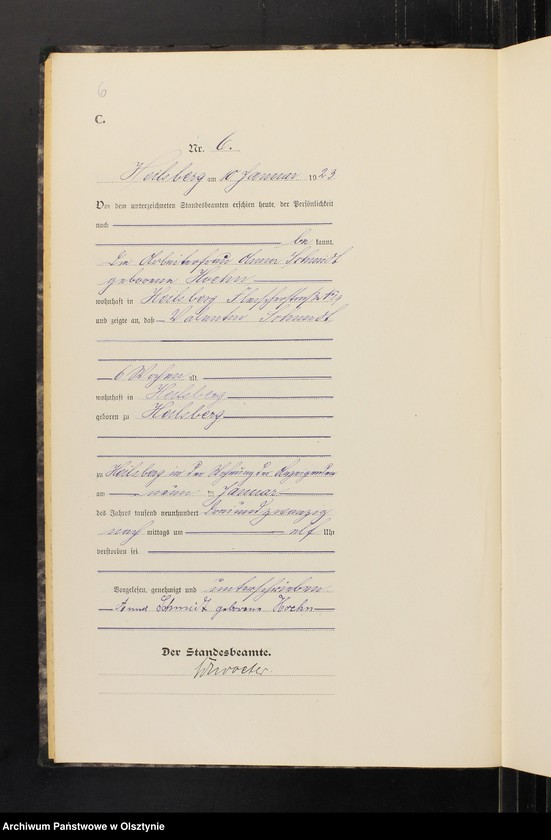 6
C.
Nr. 6.
Heilsberg am 10 Januar 1923
Vor dem unterzeichneten Standesbeamten erschien heute, der Persönlichkeit
nach
be kannt,
die Arbeiterfrau Anna Schmidt
geborene Hoehn
wohnhaft in Heilsberg
und zeigte an, daß Valentin Schmidt
6 Wochen alt,
wohnhaft in Heilsberg
geboren zu Heilsberg
zu Heilsberg in der Wohnung der Anzeigenden
am neun ten Januar
des Jahres tausend neunhundert dreiundzwanzig
nach mittags um elf Uhr
verstorben sei.
Vorgelesen, genehmigt und unterschrieben
Anna Schmidt geborene Hoehn
Der Standesbeamte.
Archiwum Państwowe w Olsztynie